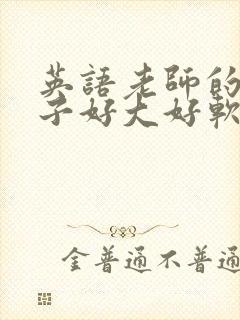 英語老師的
子好大好軟
金普通不普通